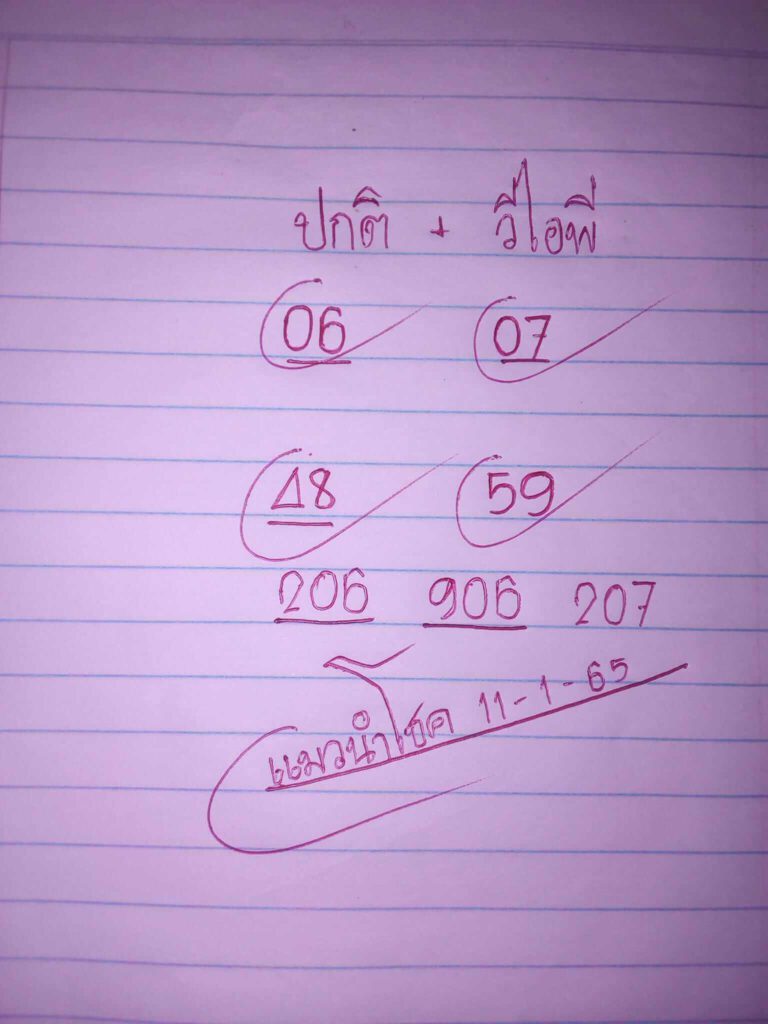 ปกติ + วีไอพี
06 07
48 59
206 906 207
แมวนำโชค 11-1-65